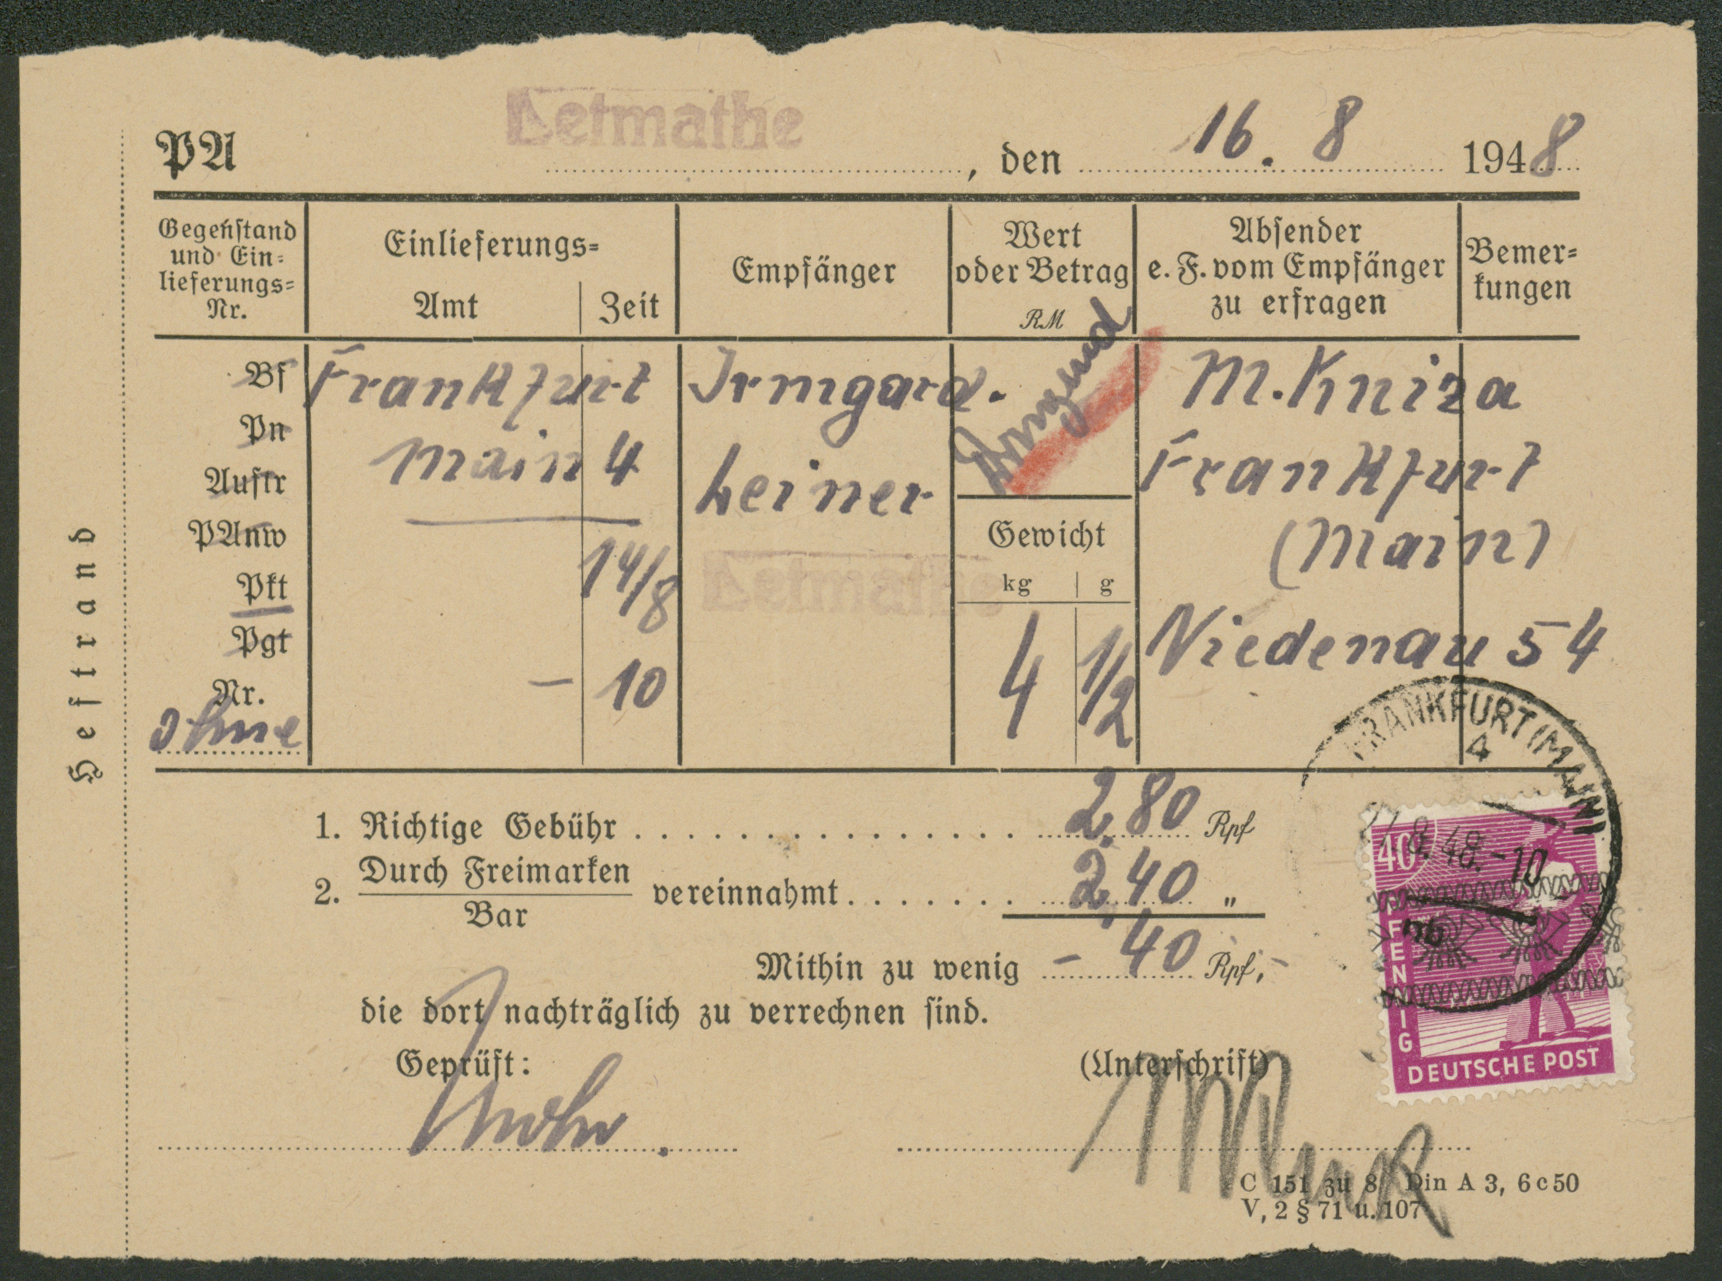 Letmathe
PA , den 16. 8 1948
Gegenstand
und Ein-
lieferungs-
Nr.
Einlieferungs-
Amt
Zeit
Empfänger
Wert
oder Betrag
RM
Absender
e. F. vom Empfänger
zu erfragen
Bemer-
kungen
Bf
Pn
Auftr
PAnw
Pkt
Pgt
Nr.
ohne
Frankfurt
Main 4
14/8
- 10
Irmgard.
Leiner
Letmathe
Dringend
Gewicht
kg g
4 1/2
M. Kniza
Frankfurt
(Main)
Niedenau 54
1. Richtige Gebühr 2,80 Rpf
2. Durch Freimarken
Bar
vereinnahmt 2,40 "
Mithin zu wenig - 40 Rpf,-
die dort nachträglich zu verrechnen sind.
Geprüft:
(Unterschrift)
C 151 zu 8 Din A 3, 6 c 50
V, 2 § 71 u. 107
Heftrand
FRANKFURT (MAIN)
4
8.48.-10
nb
40
PFENNIG
DEUTSCHE POST